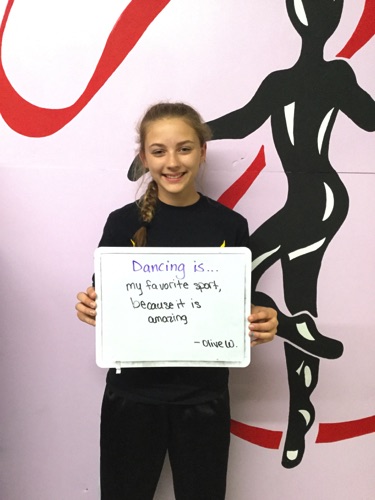 Dancing is...
my favorite sport,
because it is
amazing
- Olive W.